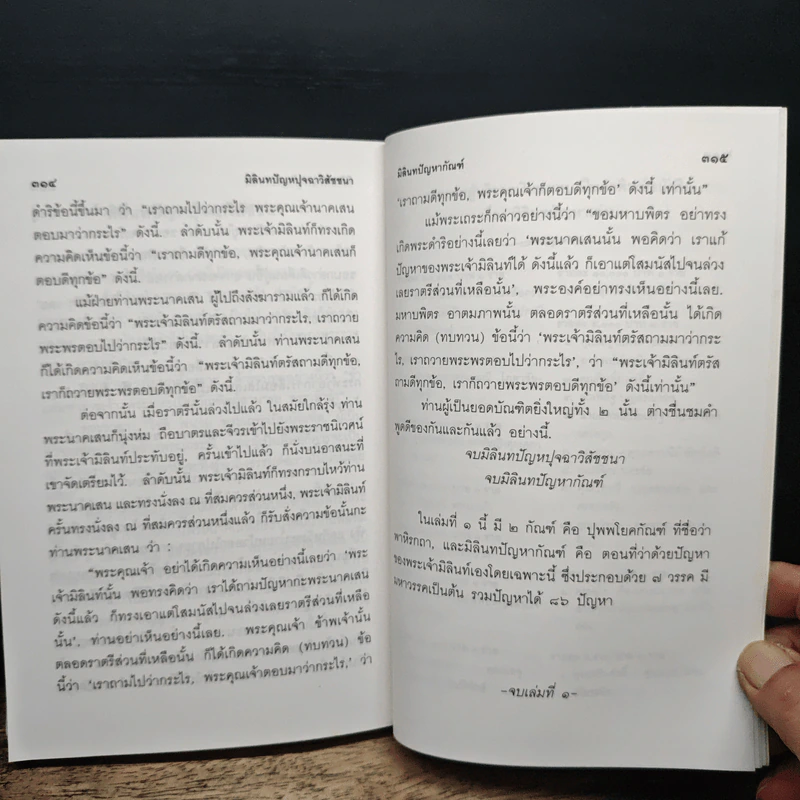 ๓๑๔ มิลินทปัญหปุจฉาวิสัชชนา
ดำริข้อนี้ขึ้นมา ว่า “เราถามไปว่ากระไร พระคุณเจ้านาคเสน
ตอบมาว่ากระไร” ดังนี้. ลำดับนั้น พระเจ้ามิลินท์ก็ทรงเกิด
ความคิดเห็นข้อนี้ว่า “เราถามดีทุกข้อ, พระคุณเจ้านาคเสนก็
ตอบดีทุกข้อ” ดังนี้.
แม้ฝ่ายท่านพระนาคเสน ผู้ไปถึงสังฆารามแล้ว ก็ได้เกิด
ความคิดข้อนี้ว่า “พระเจ้ามิลินท์ตรัสถามมาว่ากระไร, เราถวาย
พระพรตอบไปว่ากระไร” ดังนี้. ลำดับนั้น ท่านพระนาคเสน
ก็ได้เกิดความคิดเห็นข้อนี้ว่า “พระเจ้ามิลินท์ตรัสถามดีทุกข้อ,
เราก็ถวายพระพรตอบดีทุกข้อ” ดังนี้.
ต่อจากนั้น เมื่อราตรีนั้นล่วงไปแล้ว ในสมัยใกล้รุ่ง ท่าน
พระนาคเสนก็นุ่งห่ม ถือบาตรและจีวรเข้าไปยังพระราชนิเวศน์
ที่พระเจ้ามิลินท์ประทับอยู่, ครั้นเข้าไปแล้ว ก็นั่งบนอาสนะที่
เขาจัดเตรียมไว้. ลำดับนั้น พระเจ้ามิลินท์ก็ทรงกราบไหว้ท่าน
พระนาคเสน และทรงนั่งลง ณ ที่สมควรส่วนหนึ่ง, พระเจ้ามิลินท์
ครั้นทรงนั่งลง ณ ที่สมควรส่วนหนึ่งแล้ว ก็รับสั่งความข้อนั้นกะ
ท่านพระนาคเสน ว่า :
“พระคุณเจ้า อย่าได้เกิดความเห็นอย่างนี้เลยว่า ‘พระ
เจ้ามิลินท์นั้น พอทรงคิดว่า เราได้ถามปัญหากะพระนาคเสน
ดังนี้แล้ว ก็ทรงเอาแต่โสมนัสไปจนล่วงเลยราตรีส่วนที่เหลือ
นั้น’, ท่านอย่าเห็นอย่างนี้เลย. พระคุณเจ้า ข้าพเจ้านั้น
ตลอดราตรีส่วนที่เหลือนั้น ก็ได้เกิดความคิด (ทบทวน) ข้อ
นี้ว่า ‘เราถามไปว่ากระไร, พระคุณเจ้าตอบมาว่ากระไร,’ ว่า
มิลินทปัญหากัณฑ์ ๓๑๕
‘เราถามดีทุกข้อ, พระคุณเจ้าก็ตอบดีทุกข้อ’ ดังนี้ เท่านั้น”
แม้พระเถระก็กล่าวอย่างนี้ว่า “ขอมหาบพิตร อย่าทรง
เกิดพระดำริอย่างนี้เลยว่า ‘พระนาคเสนนั้น พอคิดว่า เราแก้
ปัญหาของพระเจ้ามิลินท์ได้ ดังนี้แล้ว ก็เอาแต่โสมนัสไปจนล่วง
เลยราตรีส่วนที่เหลือนั้น’, พระองค์อย่าทรงเห็นอย่างนี้เลย.
มหาบพิตร อาตมภาพนั้น ตลอดราตรีส่วนที่เหลือนั้น ได้เกิด
ความคิด (ทบทวน) ข้อนี้ว่า ‘พระเจ้ามิลินท์ตรัสถามมาว่ากระ
ไร, เราถวายพระพรตอบไปว่ากระไร’, ว่า “พระเจ้ามิลินท์ตรัส
ถามดีทุกข้อ, เราก็ถวายพระพรตอบดีทุกข้อ’ ดังนี้เท่านั้น”
ท่านผู้เป็นยอดบัณฑิตยิ่งใหญ่ทั้ง ๒ นั้น ต่างชื่นชมคำ
พูดดีของกันและกันแล้ว อย่างนี้.
จบมิลินทปัญหปุจฉาวิสัชชนา
จบมิลินทปัญหากัณฑ์
ในเล่มที่ ๑ นี้ มี ๒ กัณฑ์ คือ ปุพพโยคกัณฑ์ ที่ชื่อว่า
พาหิรกถา, และมิลินทปัญหากัณฑ์ คือ ตอนที่ว่าด้วยปัญหา
ของพระเจ้ามิลินท์เองโดยเฉพาะนี้ ซึ่งประกอบด้วย ๗ วรรค มี
มหาวรรคเป็นต้น รวมปัญหาได้ ๘๖ ปัญหา
-จบเล่มที่ ๑-